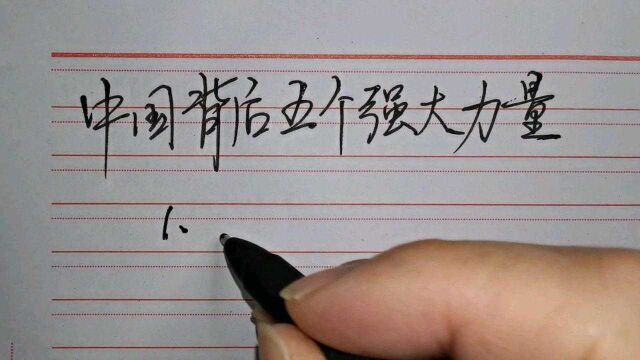 中国背后五个强大力量
1、